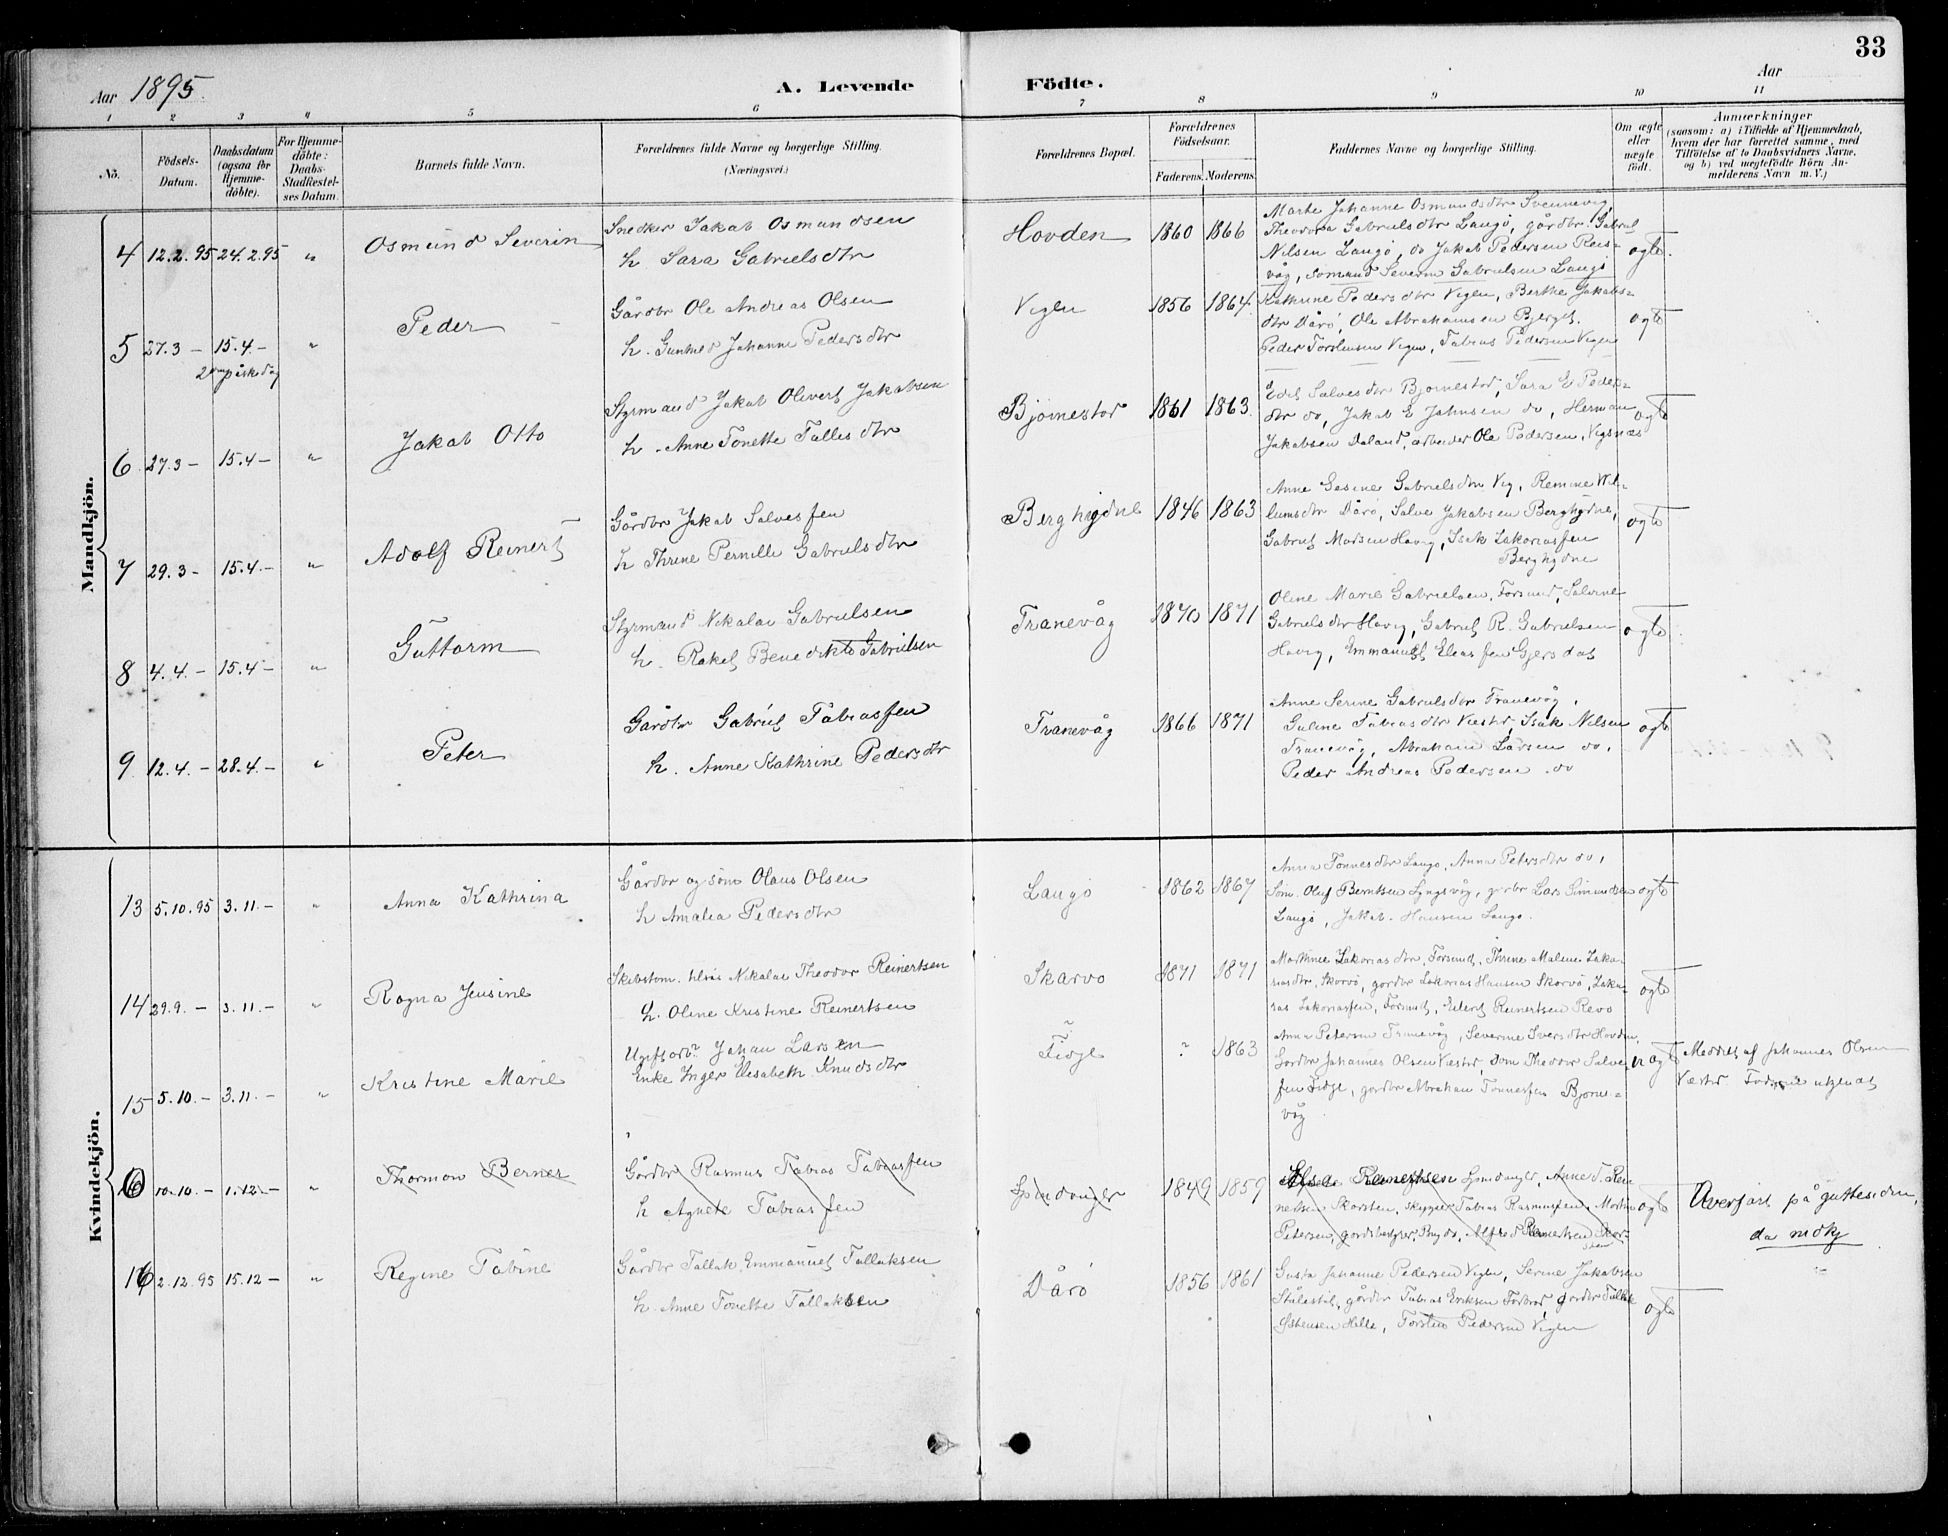 33
Aar 1895. A. Levende Födte. Aar
1 2 3 4 5 6 7 8 9 10 11
No. Födsels-Datum. Daabsdatum (ogsaa for Hjemme-döbte). For Hjemme-döbte: Daabs-Stadfæstelses Datum. Barnets fulde Navn. Forældrenes fulde Navne og borgerlige Stilling. (Næringsvei.) Forældrenes Bopæl. Forældrenes Födselsaar. Faderens. Moderens. Faddernes Navne og borgerlige Stilling. Om ægte eller uægte födt. Anmærkninger (saasom: a) i Tilfælde af Hjemmedaab, hvem der har forrettet samme, med Tilföielse af to Daabsvidners Navne, og b) ved uægtefödte Börn Anmelderens Navn m. V.)
Mandkjön.
4 12.2.95 24.2.95 " Osmund Severin Snedker Jakob Osmundsen
h. Sara Gabrielsdtr
Hovden 1860 1866
Marte Johanne Osmundsdtr Svennevig,
Theodora Gabrielsdtr Langö, gårdbr. Gabriel
Nilsen Langö, do Jakob Pedersen Reis-
våg, sömand Severin Gabrielsen Langö
ægte.
5 27.3 – 15.4 – " Peder
2den påskedag
Gårdbr Ole Andreas Olsen
h. Gunhild Johanne Pedersdtr
Vigen 1856 1864
Kathrine Pedersdtr Vigen, Berthe Jakobs-
dtr Dårö, Ole Abrahamsen Berget,
Peder Torstensen Vigen, Tobias Pedersen Vigen
ægte
6 27.3 – 15.4 – " Jakob Otto
Styrmand Jakob Olivert Jakobsen
h. Anne Tonette Tallesdtr
Bjørnestad 1861 1863.
Edel Salvesdtr Bjornestad, Sara E Peders-
dtr do, Jakob E Jahnsen do, Herman
Jakobsen Daland, arbeider Ole Pedersen, Vigsnæs
ægte
7 29.3 – 15.4 – " Adolf Reinert
Gårdbr Jakob Salvesfen
h Thrine Pernille Gabrielsdtr
Berghigdne 1846 1863
Anne Gesine Gabrielsdtr Vig, Remine Wil-
lumsdtr Dårö, Salve Jakobsen Berghigdne,
Gabriel Madsen Havig, Isak Zakariasfen
Berghigdne
ægte
8 4.4. – 15.4 – " Guttorm
Styrmand Nikolai Gabrielsen
h. Rakel Benedikte Gabrielsen
Tranevåg 1870 1871
Oline Marie Gabrielsen, Forsund, Salvine
Gabrielsdtr Havig, Gabriel R. Gabrielsen
Havig, Emmanuel Eliasfen Gjersdal
ægte
9 12.4. – 28.4. – " Peter
Gårdbr Gabriel Tobiasfen
h. Anne Kathrine Pedersdtr
Tranevåg 1866 1871
Anne Serine Gabrielsdtr Tranevåg,
Guline Tobiasdtr Væstad, Isak Nilsen
Tranevåg, Abraham Larsen do,
Peder Andreas Pedersen do
ægte
Kvindekjön.
13 5.10.95 3.11. – " Anna Kathrina
Gårdbr og söm Olaus Olsen
h Amalia Pedersdtr
Langö 1862 1867
Anna Tonnesdtr Langö, Anna Petersdtr do,
Söm. Oluf Berntsen Lyngsvåg, gårdbr Lars Simundsen
Langö, Jakob Hansen Langö.
ægte
14 29.9. – 3.11. – " Ragna Jensine
Skibstöm. Nikolai Theodor Reinertsen
h. Oline Kristine Reinertsen
Skarvö 1871 1871
Martinie Zakariasdtr, Forsund, Thrine Malene Zaka-
riasdtr, Skarvö, gårdbr Zakarias Hansen Skarvö, Zaka-
rias Zakariasfen, Forsund, Eilert Reinertsen Revö
ægte
15 5.10. – 3.11. – " Kristine Marie
Ugift Johan Larsen
Enke Inger Elisabeth Knudsdtr
Fidje ? 1863
Anna Petersen Tranevåg, Severine Sversdtr Hovden,
Gårdbr Johannes Olsen Væstad, Theodor Salve-
fen Fidje, gårdbr Abraham Tonnesfen Bjørne-
våg
uægte
Meddelt af Johannes Olsen
Væstad
16 10.10. – 1.12. – " Thormon Berner
Gårdbr Rasmus Tobias Tobiasfen
h Agnete Tobiasfen
Spindanger 1849 1859
Elsa Reinertsen Spindanger, Anne d. Rei-
nertsen Skarsten, skipper Tobias Rasmusfen, Martin
Petersen, gårdsbestyrer, Alfred Reinertsen Skar-
sten
ægte
Overført på guttesiden,
da mdkj
16 2.12.95 15.12 – " Regine Tobine
Gårdbr Tallak Emmanuel Tallaksen
h. Anne Tonette Tallaksen
Dårö 1856 1861
Gusta Johanne Pedersen Vigen, Serine Jakobsen
Stålestöl, gårdbr Tobias Eriksen Fodbrod, gårdbr Tallak
Hille, Torsten Pedersen Vigen
ægte